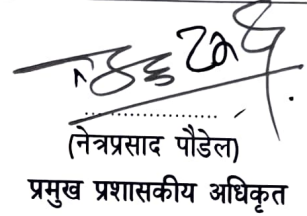 (नेत्रप्रसाद पौडेल)
प्रमुख प्रशासकीय अधिकृत